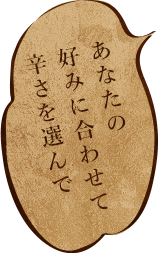 あなたの
好みに合わせて
辛さを選んで